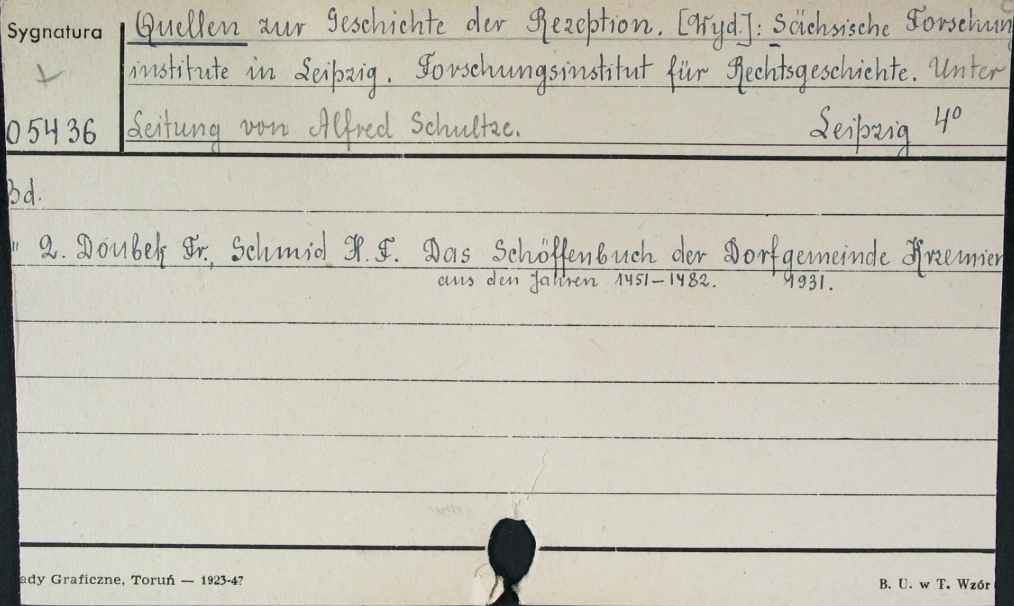 Sygnatura
05436
Quellen zur Geschichte der Rezeption. [Wyd.]: Sächsische Forschun
institute in Leipzig. Forschungsinstitut für Rechtsgeschichte. Unter
Leitung von Alfred Schultze. Leipzig 4º
Bd.
" 2. Doubek Fr., Schmid H. F. Das Schöffenbuch der Dorfgemeinde Krzemien
aus den Jahren 1451-1482. 1931.
ady Graficzne, Toruń — 1923-47
B. U. w T. Wzór